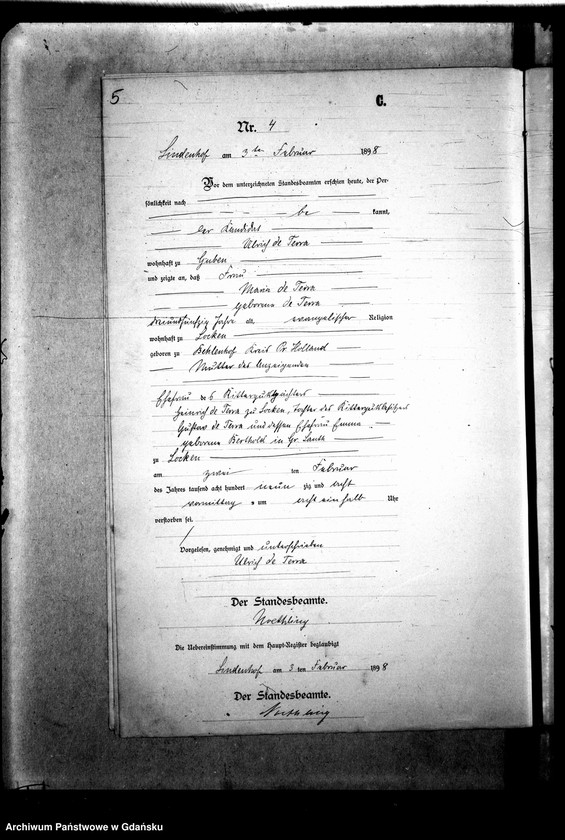 5
C.
Nr. 4
Lindenhof am 3ten Februar 1898
Vor dem unterzeichneten Standesbeamten erschien heute, der Per-
sönlichkeit nach
be kannt,
der Kandidat
Ulrich de Terra
wohnhaft zu Guben
und zeigte an, daß Frau
Maria de Terra
geborene de Terra
Jahre alt, evangelischer Religion
wohnhaft zu Locken
geboren zu Behlenhof Kreis Pr. Holland
Mutter des Anzeigenden
Ehefrau des Rittergutspächters
Heinrich de Terra zu Locken, Tochter des Rittergutsbesitzers
Gustav de Terra und dessen Ehefrau Emma
geborene Berthold in Gr.
zu Locken
am zwei ten Februar
des Jahres tausend acht hundert neun zig und acht
vormittag s um acht ein halb Uhr
verstorben sei.
Vorgelesen, genehmigt und unterschrieben
Ulrich de Terra
Der Standesbeamte.
Noethling
Die Uebereinstimmung mit dem Haupt-Register beglaubigt
Lindenhof am 3 ten Februar 1898
Der Standesbeamte.
Noethling
Archiwum Państwowe w Gdańsku